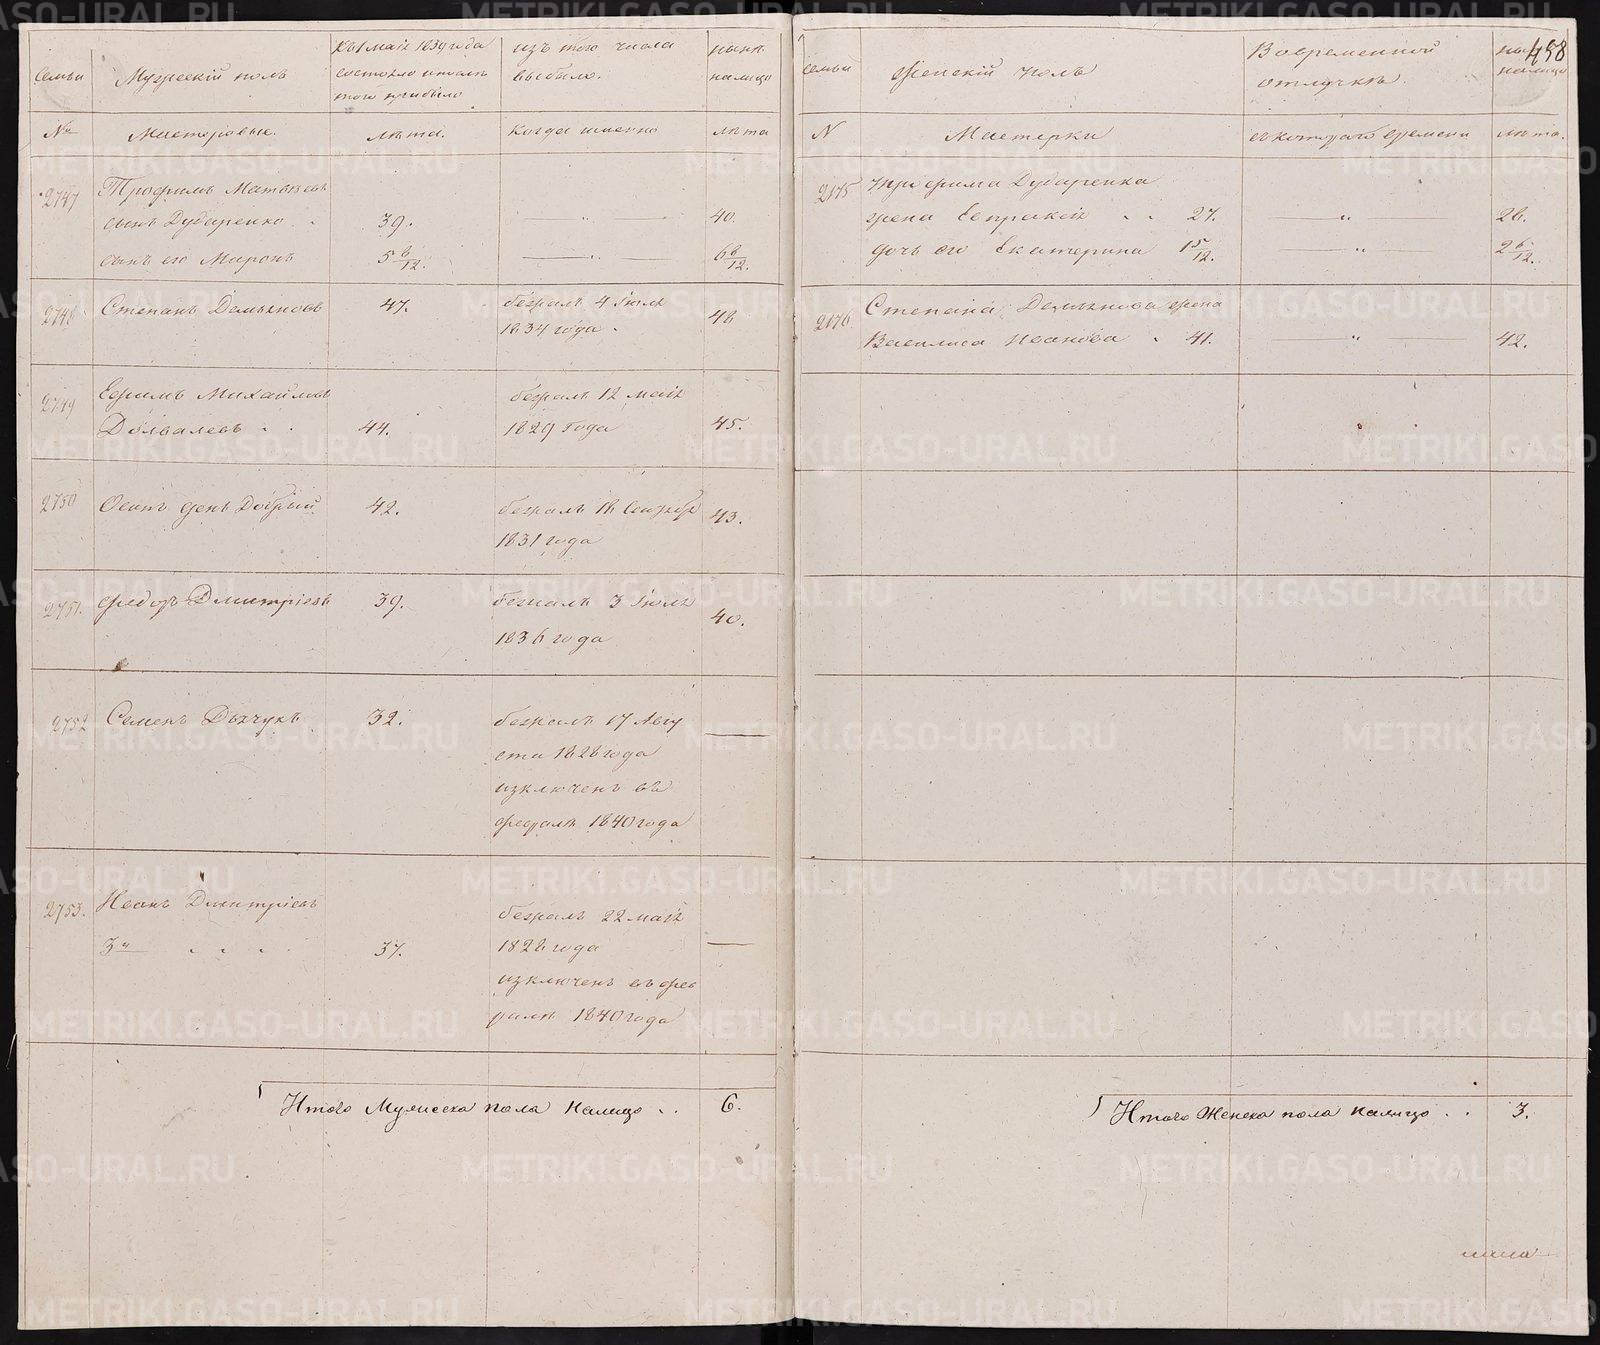 Семьи
Мужескій полъ
Къ 1 маія 1839 года
состояло и послѣ
того прибыло
изъ того числа
выбыло.
нынѣ
налицо
№
Мастеровые.
лѣта.
Когда именно
лѣта
2747
Трофимъ Матвѣевъ
сынъ Дударенко
39.
40.
сынъ его Миронъ
5 6/12.
6 6/12.
2748
Степанъ Демьяновъ
47.
бежалъ 4 Іюля
1834 года.
48
2749
Ефимъ Михайловъ
44.
бежалъ 12 маія
1829 года
45.
2750
Осипъ День Добрый
42.
бежалъ 18
1831 года
43.
2751.
Федоръ Дмитріевъ
39.
бежалъ 3 Іюля
1836 года
40.
2752
Семенъ Дьячукъ
32.
бежалъ 17 Авгу
ста 1828 года
изключенъ въ
февралѣ 1840 года
2753.
Иванъ Дмитріевъ
3й
37.
бежалъ 22 маія
1828 года
изключенъ въ фев
ралѣ 1840 года
Итого Мужеска пола налицо . . 6.
458
семьи
Женскій полъ
В овременной
отлучкѣ.
налицо
N
Мастерки
съ котораго времени
лѣта.
2175
Трофима Дударенка
жена Евпраксія . . 27.
28.
дочь его Екатерина 1 5/12.
2 6/12.
2176
Степана Демьянова жена
Василиса Иванова . 41.
42.
Итого Женска пола налицо . . 3.